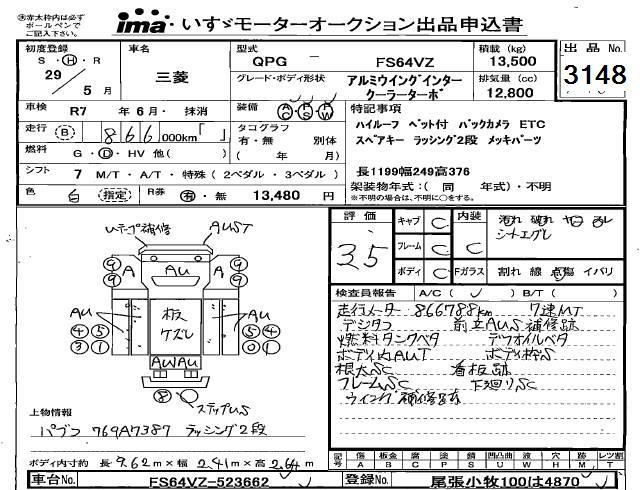 ※赤太枠内は必ず
ボールペンで
ご記入ください。
ima いすゞモーターオークション出品申込書
初度登録
S・H・R
29
5 月
車名
三菱
型式
QPG － FS64VZ
グレード・ボディ形状
アルミウイングインター
クーラーターボ
積載 (kg)
13,500
排気量 (cc)
12,800
出品No.
3148
車検 R7 年 6 月・ 抹消
走行 B 866,000km「 」
燃料 G・D・HV 他( )
シフト 7 M/T・A/T・特殊 ( 2ペダル・3ペダル )
色 白 (指定) R券 有・無 13,480 円
装備 AC PS PW
タコグラフ
有・無 別体
( 年 月)
特記事項
ハイルーフ ベット付 バックカメラ ETC
スペアキー ラッシング2段 メッキパーツ
長1199幅249高376
架装物年式:( 同 年式)・不明
※不明の場合は、不明に○をする。
評価
3.5
キャブ C
フレーム C
ボディ C
内装
C
Fガラス
汚れ 破れ ヤコ ヌレ
シートエグレ
割れ 線 点傷 イバリ
検査員報告 A/C ( ) B/T ( )
走行メーター 866788km 7速MT
デジタコ 前立AUS補修跡
燃料タンクベタ デフオイルベタ
ボディ内AUT ボディ枠S
根太SC 看板跡
フレームSC 下廻りSC
ウイング補修跡有
Lテープ補修
AUST
9 9 A AU A 9 9
AU AU
4 5 3 1
ホネ
ケズレ
4 5 0 1
AWAU
8
ステップUS
上物情報
パブコ 769A7387 ラッシング2段
ボディ内寸約 長 9.62m × 幅 2.41m × 高 2.64m
記号 傷 板金 腐 塗 錆 凹凸曲 波 穴 跡 レツ割
A B C P S U W H M T
車台No. FS64VZ-523662
登録No. 尾張小牧100は4870